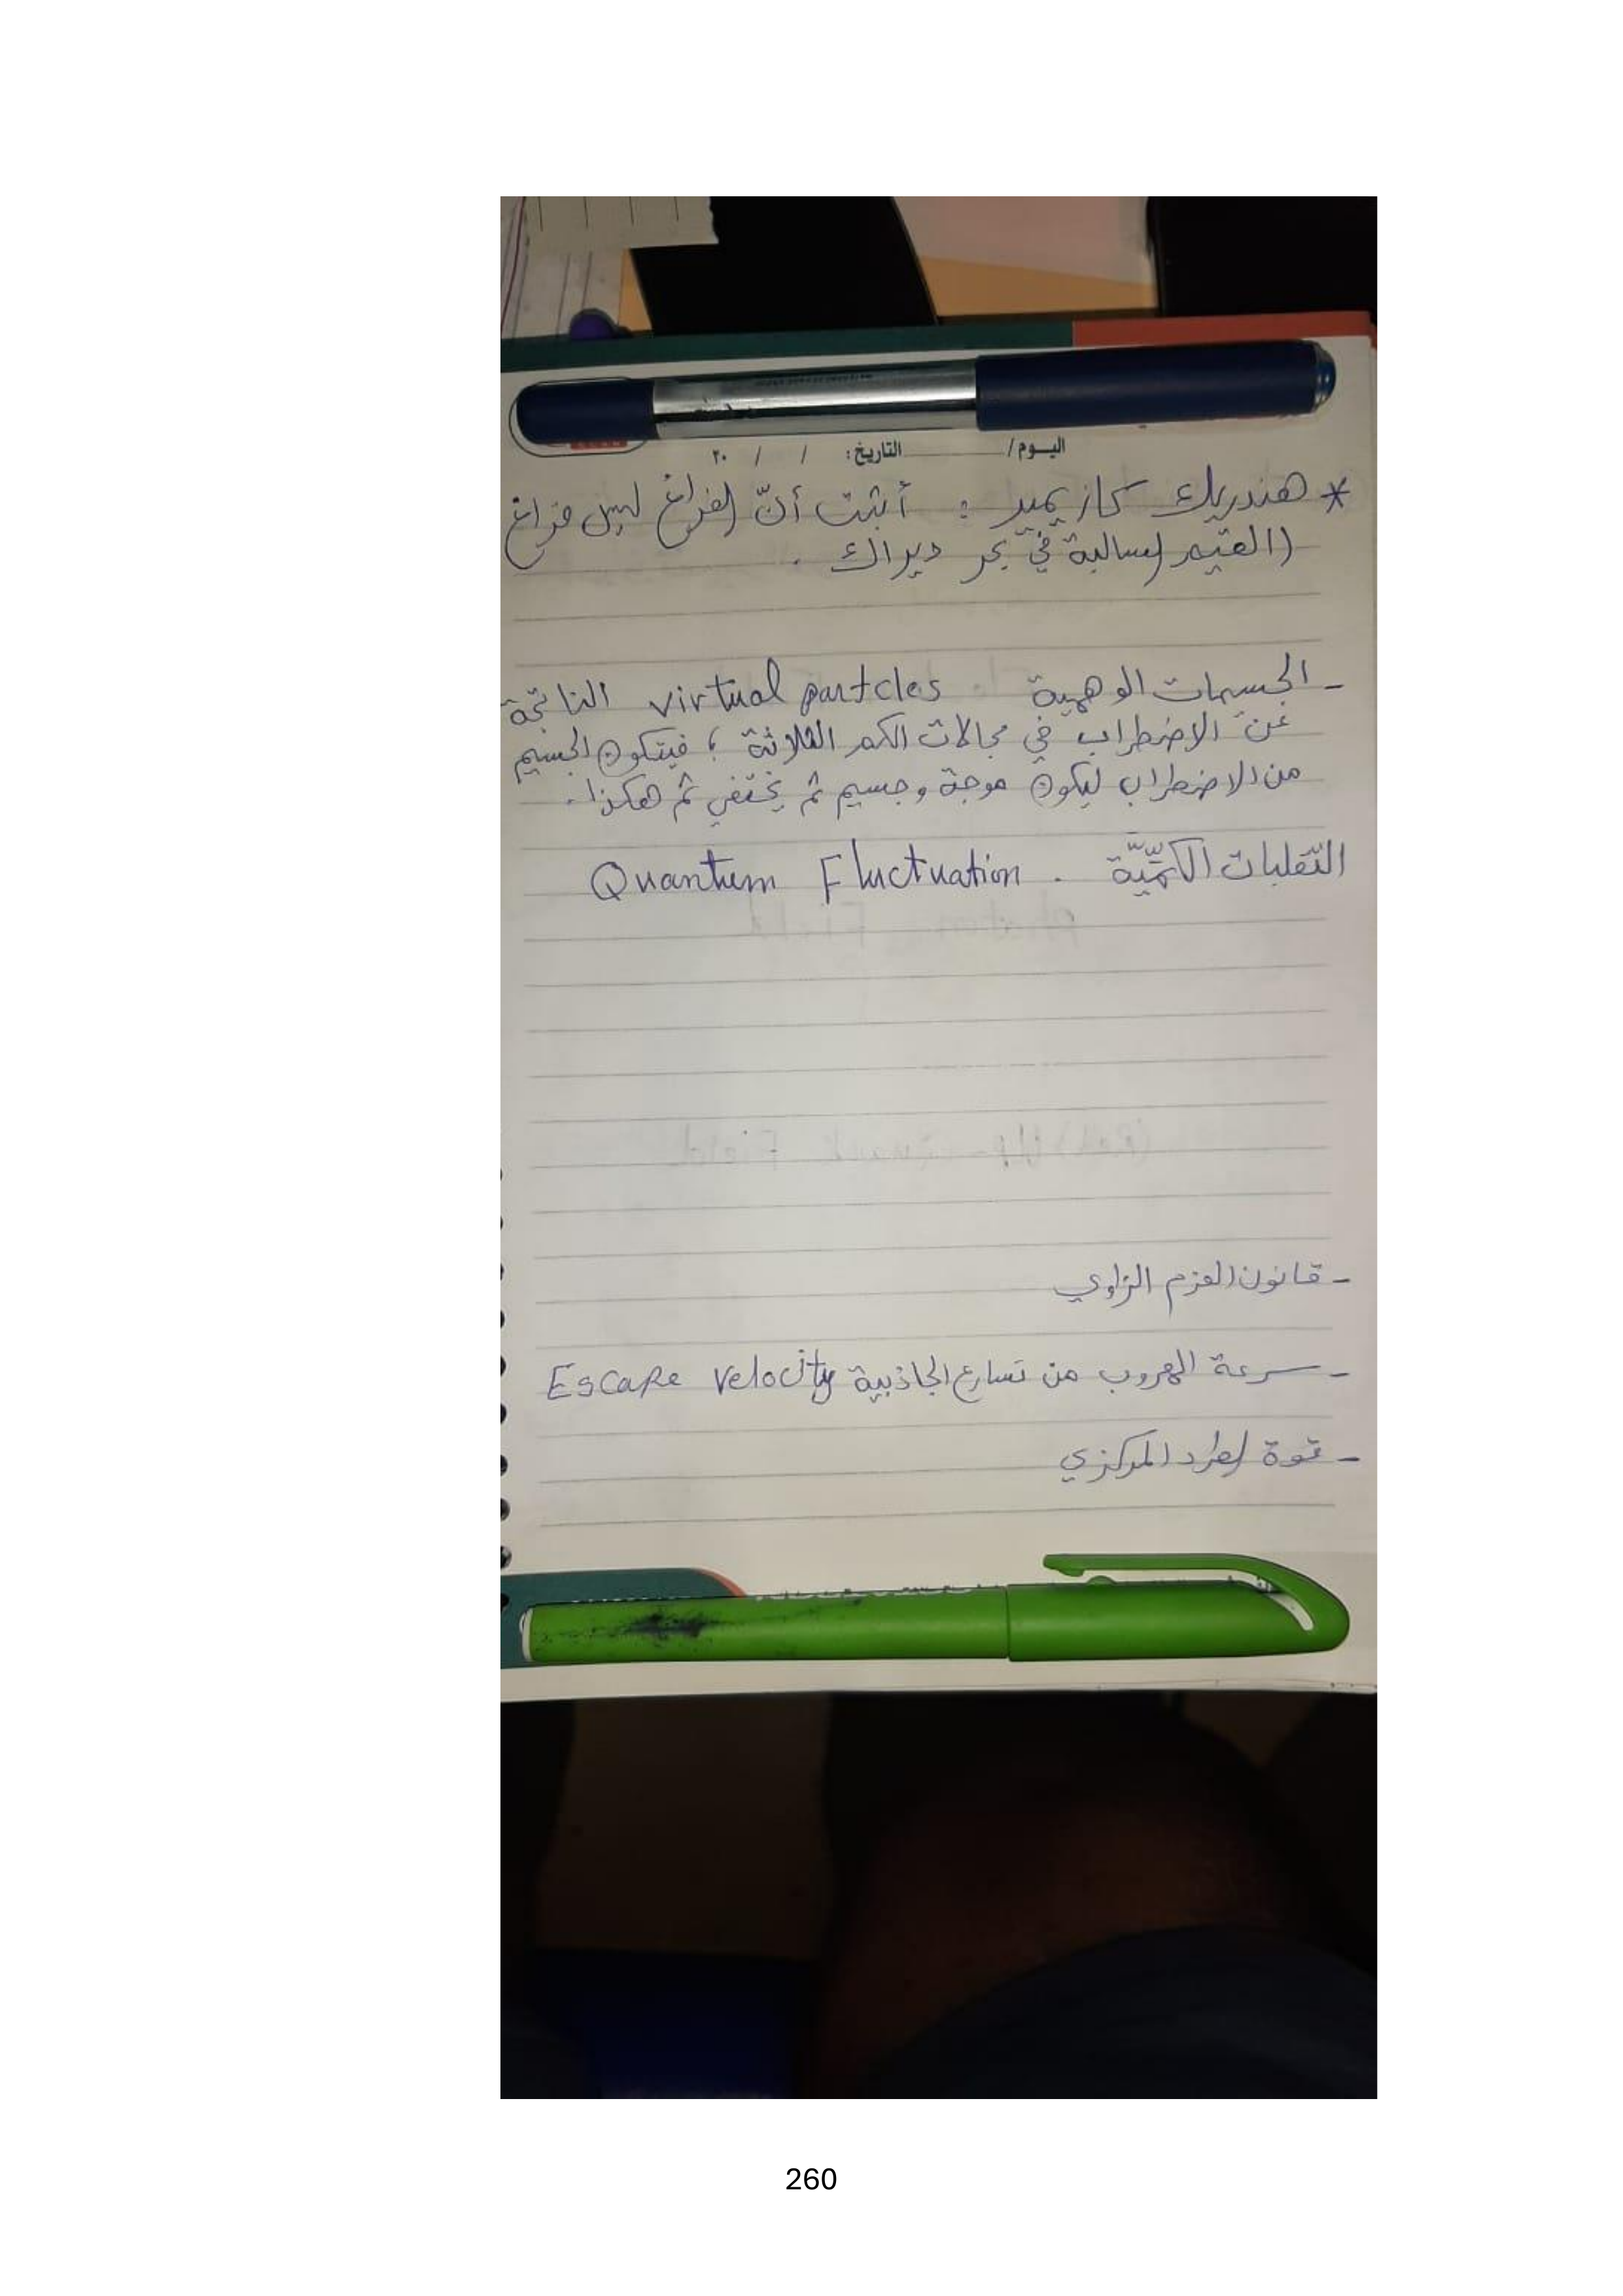 اليوم/ التاريخ: / / ٢٠
* هندريك كازيمير : أثبت أنّ الفراغ ليس فراغ
(القيم السالبة في بحر ديراك .
- الجسيمات الوهمية virtual partcles الناتجة
عن الاضطراب في مجالات الكم الثلاثة ، فيتكون الجسيم
من الاضطراب ليكون موجة وجسيم ثم يختفي ثم هكذا.
التّقلبات الكميّة . Quantum Fluctuation
- قانون العزم الزاوي
- سرعة الهروب من تسارع الجاذبية Escape velocity
- قوة الطرد المركزي
260